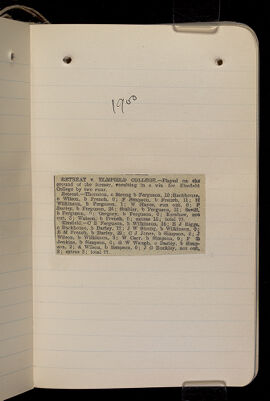 1900
RETREAT v. ELMFIELD COLLEGE.—Played on the
ground of the former, resulting in a win for Elmfield
College by two runs.
Retreat.—Thornton, c Storey b Ferguson, 10; Backhouse,
c Wilson, b French, 0; F Simpson, b French, 11; H
Wilkinson, b Ferguson, 1; W Hayes, run out, 0; P
Darley, b Ferguson, 24; b Ferguson, 13;
b Ferguson, 0; Gregory, b Ferguson, 0; Kershaw, not
out, 3; Watson, b French, 0; extras 11; total
Elmfield.—C E Ferguson, b Wilkinson, 16; E J
c Backhouse, b Darley, 12; J W Storey, b Wilkinson, 0;
E M French, b Darley, C J Jones, b Simpson, 3; J
Wilson, b Wilkinson, 3; W Carr, b Simpson, 0; F
Jenkins, b Simpson, 0; G W Waugh, c Darley, b Simp-
son, 2; A Wilson, b Simpson, 0; J G Buckley, not out,
extras total 77.